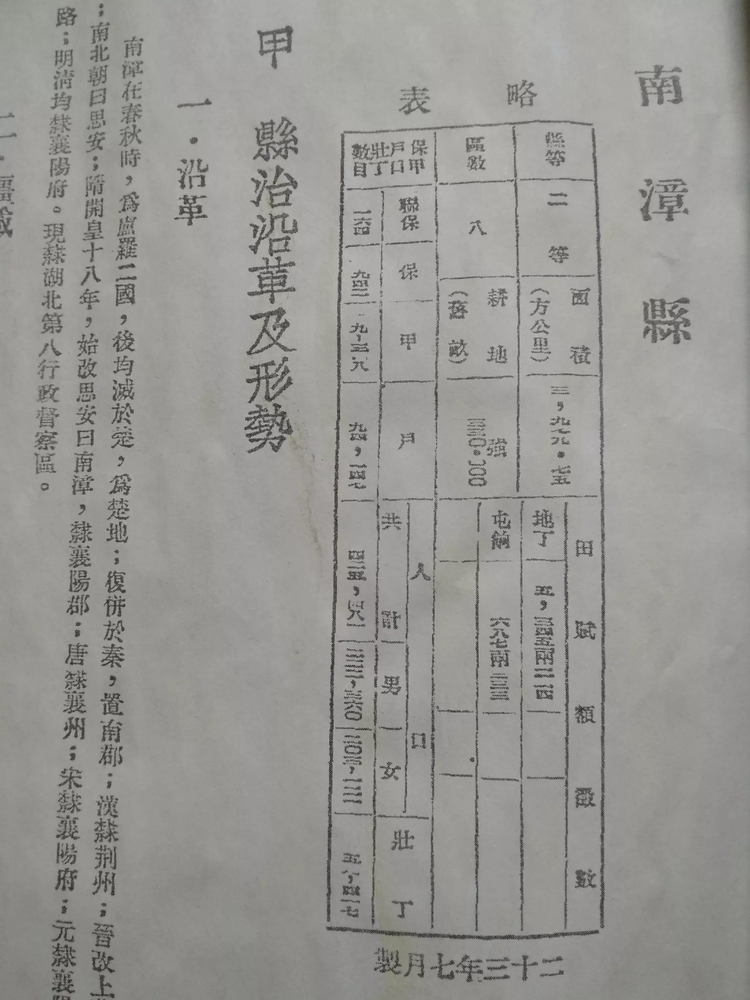 南漳縣
略表
田賦額徵數
縣等 二等 面積（方公里） 三，九七九．七五 地丁
區數 八 耕地（舊畝） 強 屯餉 六八七兩二三三
保甲戶口壯丁數目 聯保 保 甲 戶 人口 共計 男 女 壯丁
一六四 九四二 九四，一四七 四二五，四八一 二二二，三六〇 二〇三，一二一
二十三年七月製
甲 縣治沿革及形勢
一．沿革
南漳在春秋時，爲盧羅二國，後均滅於楚，爲楚地；復併於秦，置南郡；漢隸荆州；晉改上
；南北朝曰思安；隋開皇十八年，始改思安曰南漳，隸襄陽郡；唐隸襄州；宋隸襄陽府；元隸襄陽
路；明清均隸襄陽府。現隸湖北第八行政督察區。
二．疆域